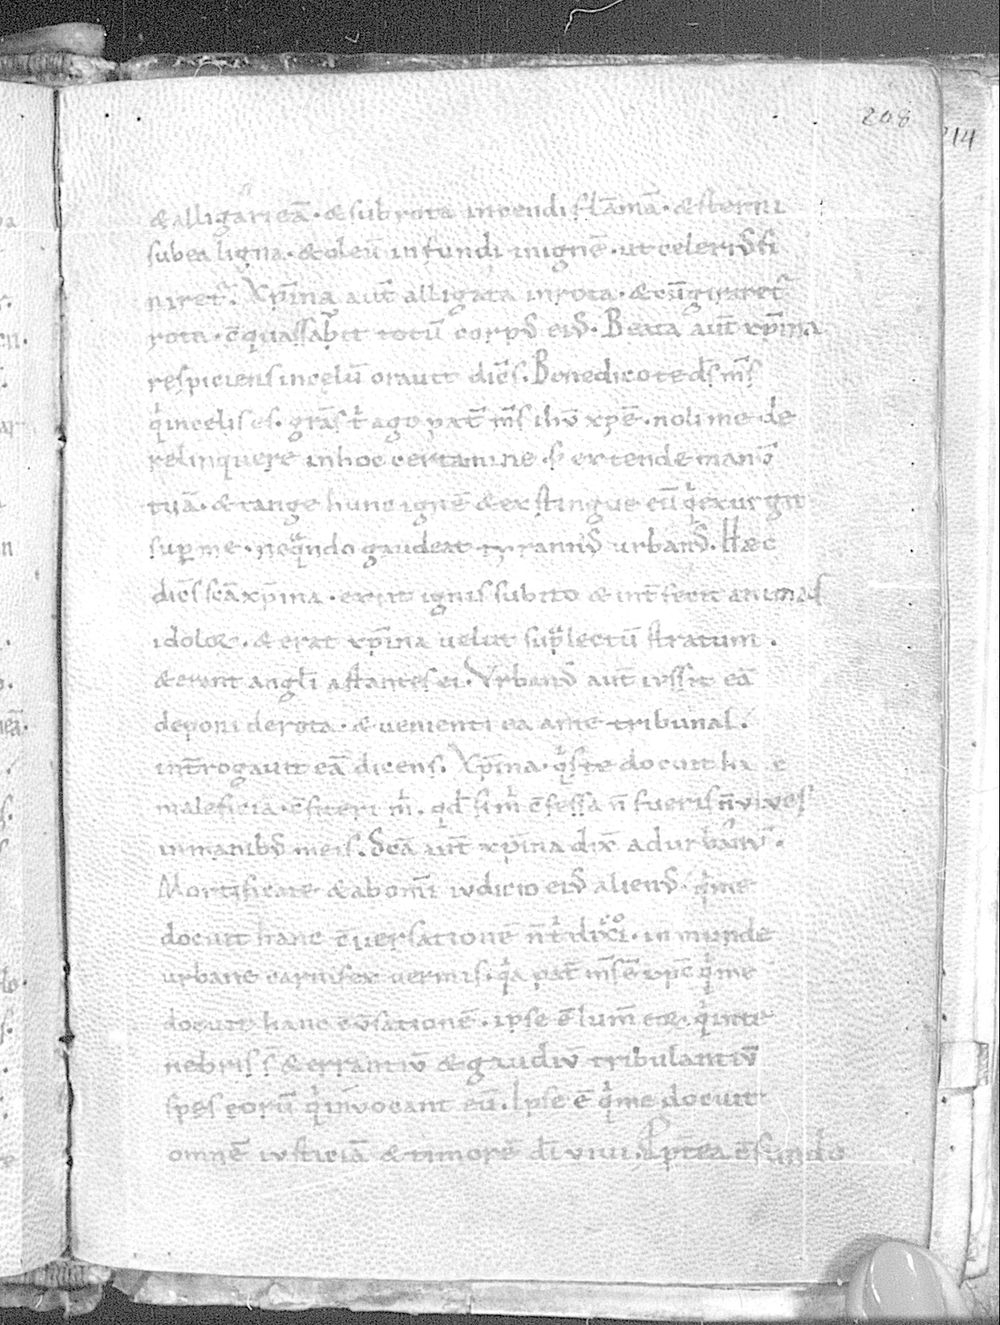 208
214
& alligari eā · & sub rota incendi flāmā · & sterni
sub ea ligna · & oleū infundi in ignē · ut celeri fi
niret᷑. Xp̄ina aut̄ alligata in rota · & cū giraret᷑
rota · c̄quassabit totū corp᷒ ei᷒. Beata aut̄ xp̄ina
respiciens in celū orauit dic̄s. Benedico te ds̄ ms̄
qͥ in celis es · gr̄as tͥ ago pat̄ ms̄ ihū xpē · noli me de
relinquere in hoc certamine · s; extende man᷒
tuā · & tange hunc ignē & exstingue eū qͥ exurgit
sup me · neqͣndo gaudeat tyrann᷒ urban᷒. Hæc
dic̄s sc̄a xp̄ina · exiit ignis subito & int̄fecit animas
idoloꝝ · & erat xp̄ina uelut sup lectū stratum .
& erant angl̄i astantes ei. Vrban᷒ aut̄ iussit eā
deponi de rota · & uenienti ea ante tribunal .
int̄rogauit eā dicens. Xp̄ina · qͥs te docuit ha ē
maleficia · c̄fiteri mͥ. qd̄ si mͥ c̄fessa n̄ fueris n̄ viues
in manib᷒ meis. Sc̄a aut̄ xp̄ina dix̄ ad urbanū .
Mortificate & ab om̄i iudicio ei᷒ alien᷒ qͥ me
docuit hanc c̄uersationē n̄ tͥ dixi · inmunde
urbane carnifex uermis · qͣa pat̄ ms̄ ē xpē qͥ me
docuit hanc c̄u᷒sationē · ipse ē lum̄ eoꝝ · qͥ in te
nebris s̄ & errantiū & gaudiū tribulantiū
spes eorū qͥ inuocant eū. Ipse ē qͥ me docuit
omnē iusticiā & timorē dī uiui. Ppt̄ea c̄fundo